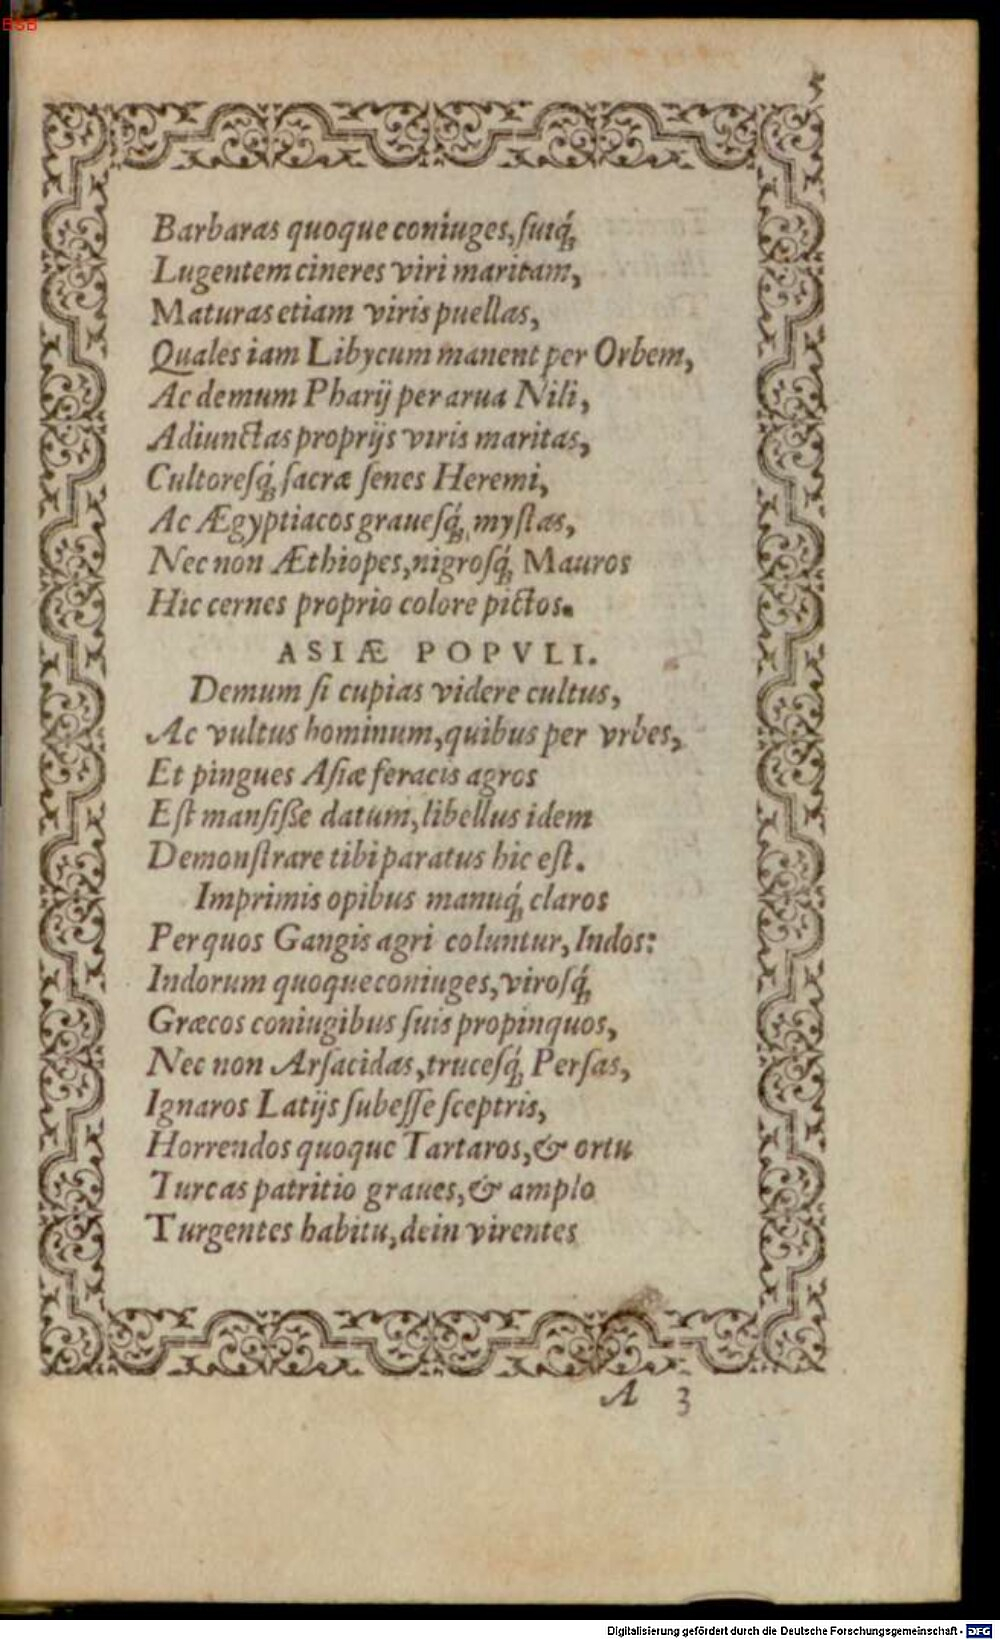 BSB
Barbaras quoque coniuges, suiq́;
Lugentem cineres viri maritam,
Maturas etiam viris puellas,
Quales iam Libycum manent per Orbem,
Ac demum Pharij per arua Nili,
Adiunctas proprijs viris maritas,
Cultoresq́; sacræ senes Heremi,
Ac Ægyptiacos grauesq́; mystas,
Nec non Æthiopes, nigrosq́; Mauros
Hic cernes proprio colore pictos.
ASIÆ POPVLI.
Demum si cupias videre cultus,
Ac vultus hominum, quibus per vrbes,
Et pingues Asiæ feracis agros
Est mansiße datum, libellus idem
Demonstrare tibi paratus hic est.
Imprimis opibus manuq́; claros
Per quos Gangis agri coluntur, Indos:
Indorum quoque coniuges, virosq́;
Græcos coniugibus suis propinquos,
Nec non Arsacidas, trucesq́; Persas,
Ignaros Latijs subesse sceptris,
Horrendos quoque Tartaros, & ortu
Turcas patritio graues, & amplo
Turgentes habitu, dein virentes
A 3
Digitalisierung gefördert durch die Deutsche Forschungsgemeinschaft - DFG